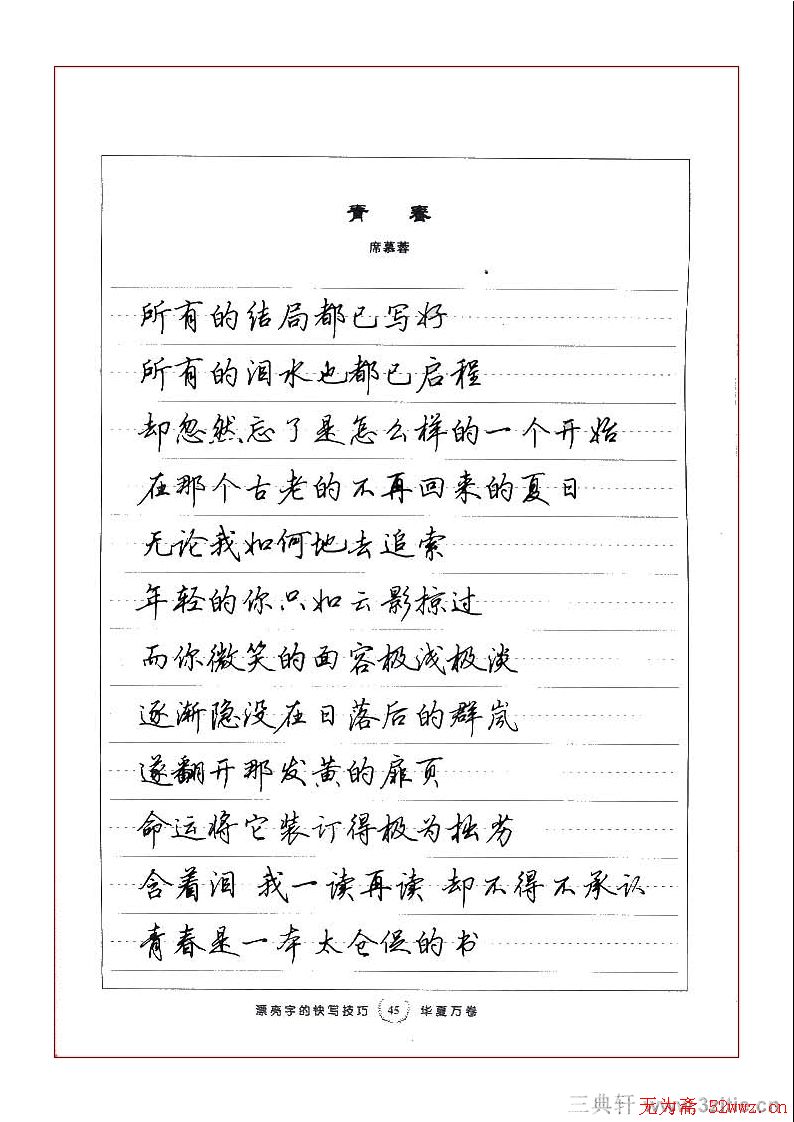 青 春
席慕蓉
所有的结局都已写好
所有的泪水也都已启程
却忽然忘了是怎么样的一个开始
在那个古老的不再回来的夏日
无论我如何地去追索
年轻的你只如云影掠过
而你微笑的面容极浅极淡
逐渐隐没在日落后的群岚
遂翻开那发黄的扉页
命运将它装订得极为拙劣
含着泪 我一读再读 却不得不承认
青春是一本太仓促的书
漂亮字的快写技巧 45 华夏万卷
三典轩
无为斋 52wwz.cn